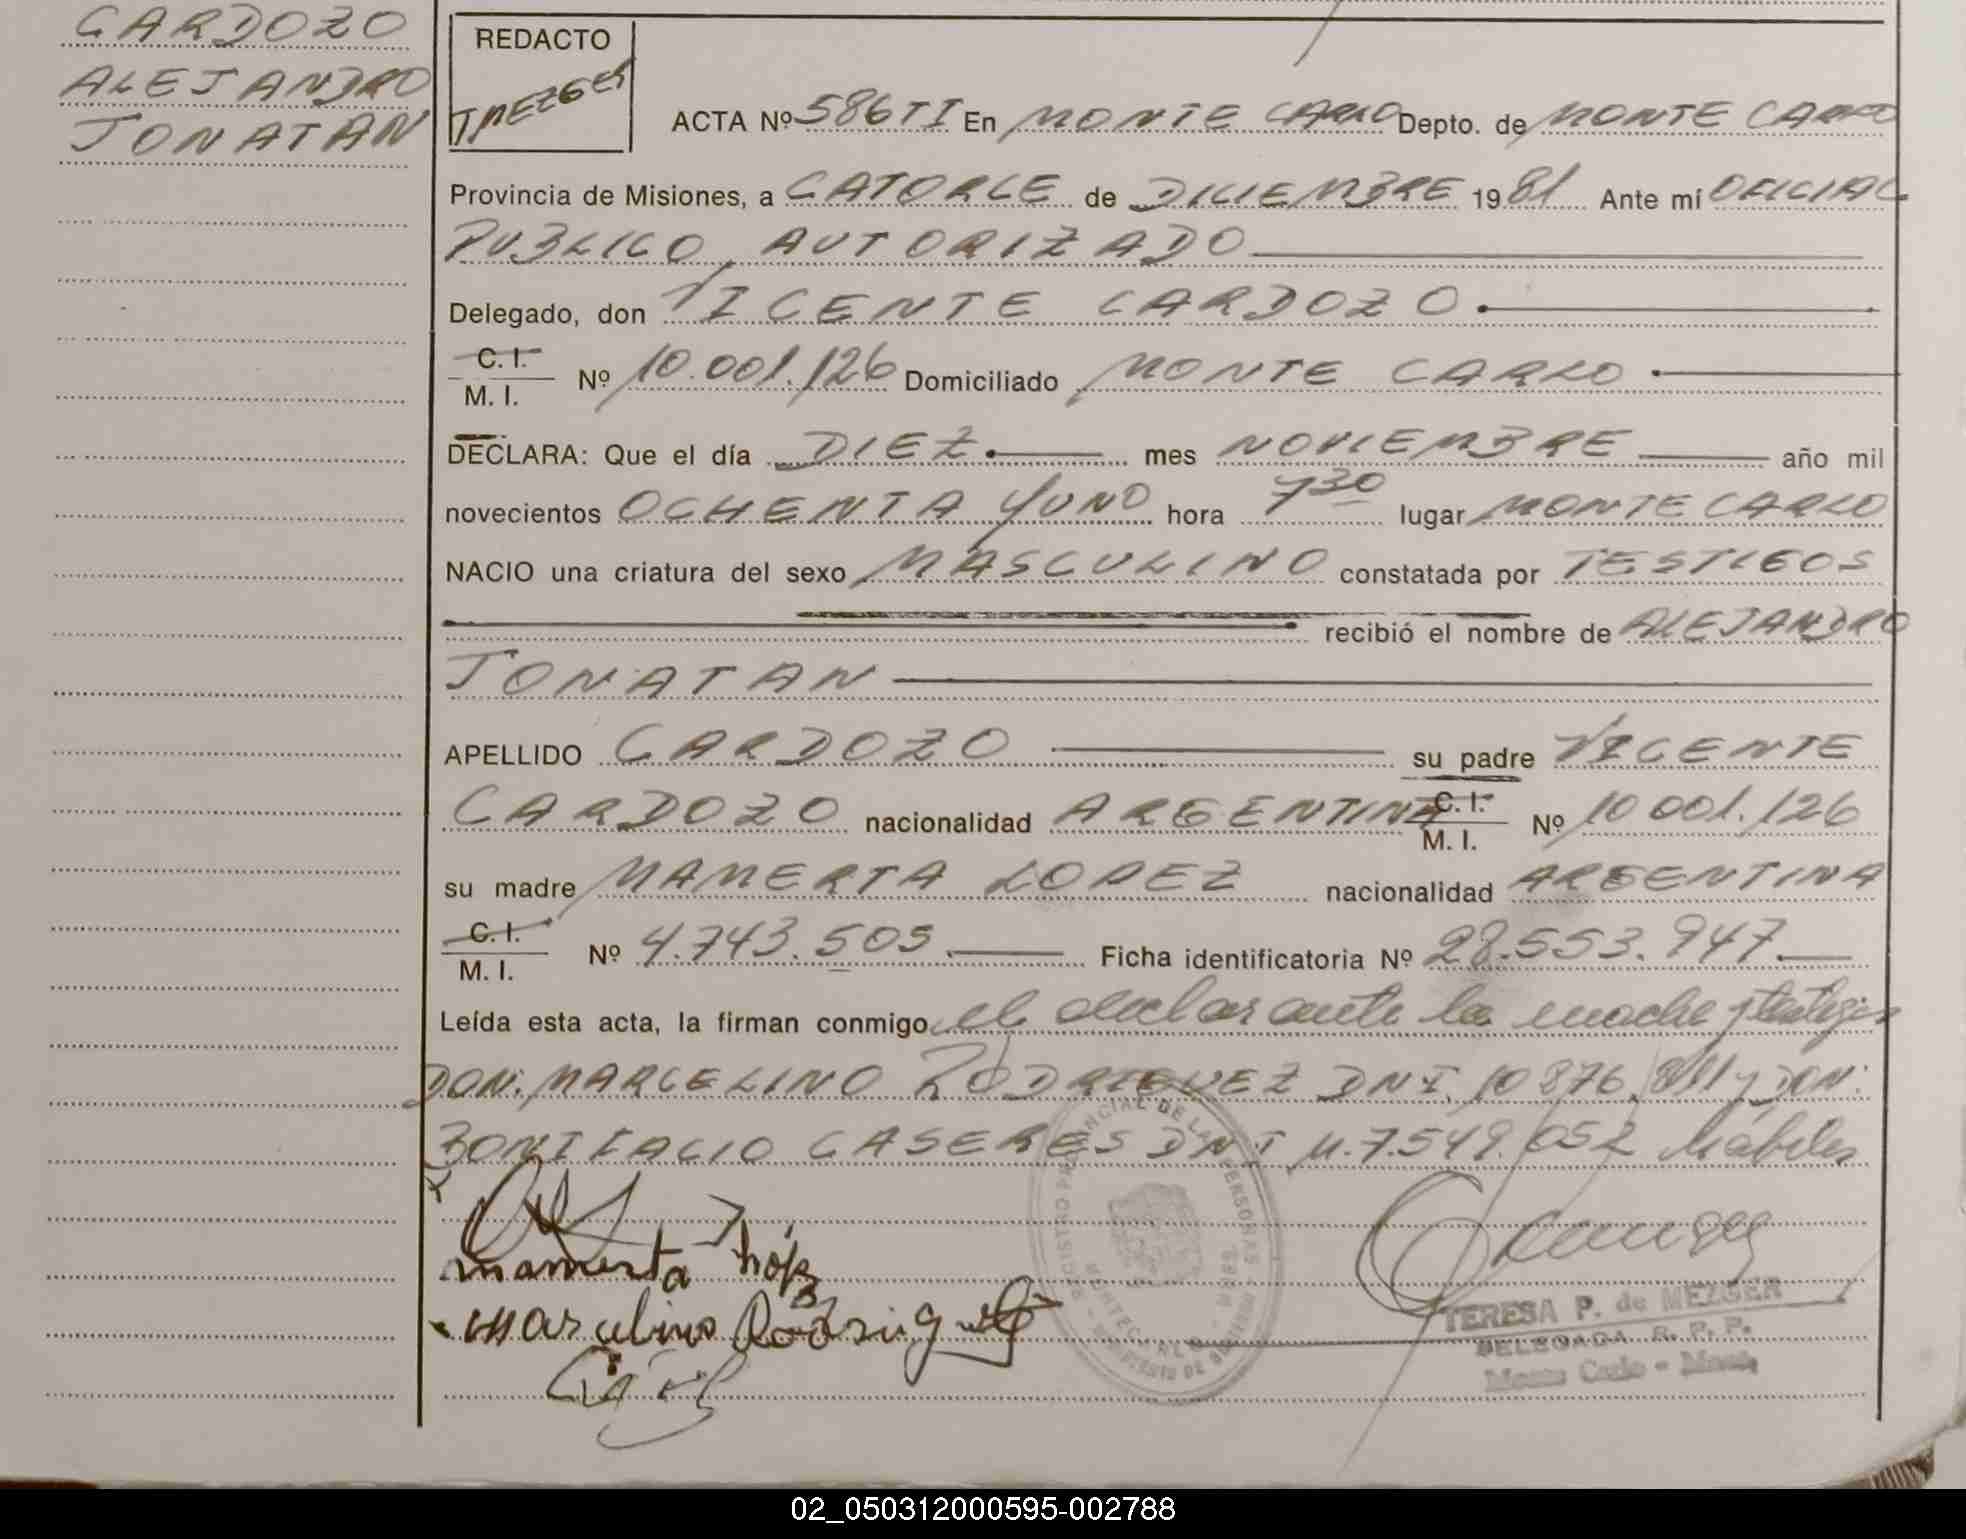 CARDOZO
ALEJANDRO
JONATAN
REDACTO
TMEZGER
ACTA Nº 586 TI En MONTE CARLO Depto. de MONTE CARLO
Provincia de Misiones, a CATORCE de DICIEMBRE 1981 Ante mí OFICIAL
PUBLICO AUTORIZADO
Delegado, don VICENTE CARDOZO
C. I.
M. I. Nº 10.001.126 Domiciliado MONTE CARLO
DECLARA: Que el día DIEZ mes NOVIEMBRE año mil
novecientos OCHENTA Y UNO hora 7 30 lugar MONTE CARLO
NACIO una criatura del sexo MASCULINO constatada por TESTIGOS
recibió el nombre de ALEJANDRO
JONATAN
APELLIDO CARDOZO su padre VICENTE
CARDOZO nacionalidad ARGENTINA C. I. M. I. Nº 10 001.126
su madre MAMERTA LOPEZ nacionalidad ARGENTINA
C. I.
M. I. Nº 4.743.505 Ficha identificatoria Nº 28.553.947
Leída esta acta, la firman conmigo el declarante la madre y testigos
DON. MARCELINO RODRIGUEZ DNI. 10 876. y DON:
BONIFACIO CASERES DNI M. 7.549.052 hábiles
mamerta López
marcelino Rodriguez
REGISTRO PROVINCIAL DE LAS PERSONAS
TERESA P. de MEZGER
DELEGADA R. P. P.
Monte Carlo - Mnes.
02_050312000595-002788